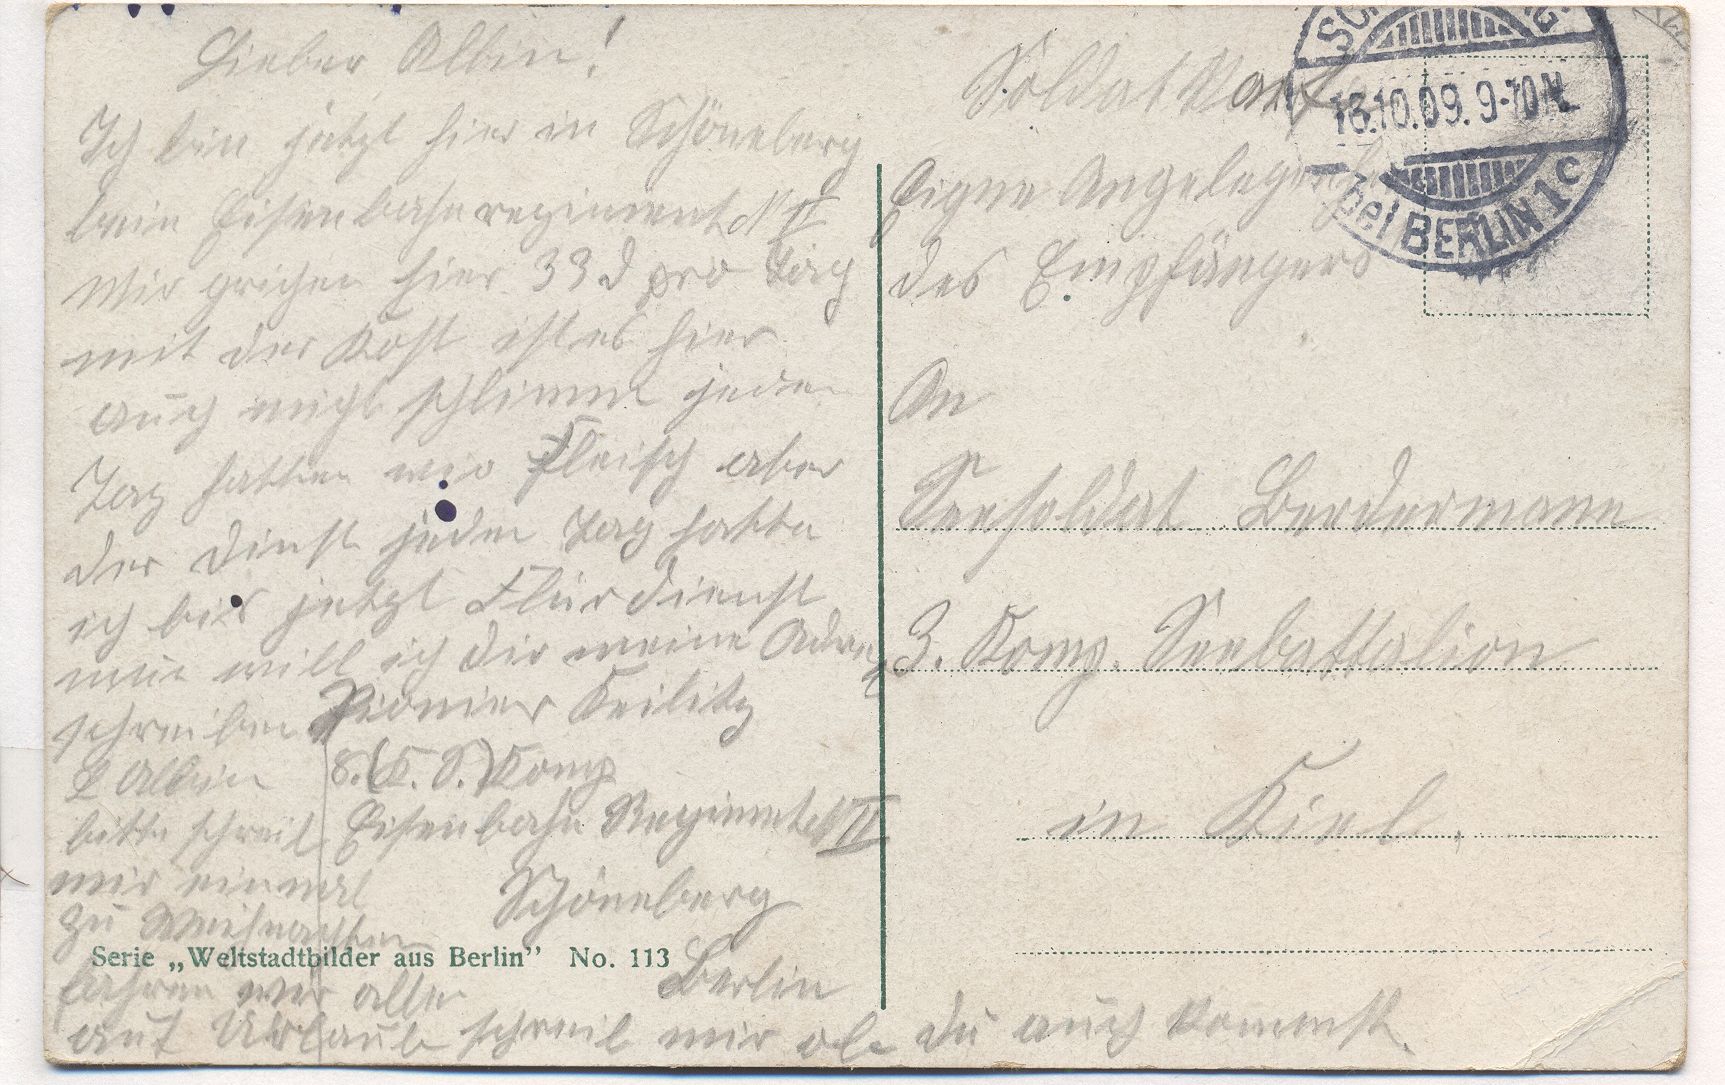 Lieber Albin!
Ich bin jetzt hier in Schöneberg
beim Eisenbahnregiment No II
Wir grigen hier 33 d pro Tag
mit der Kost ist es hier
auch nicht schlimm jeden
Tag hatten wir Fleisch aber
der Dinst jeden Tag hatte
ich bis jetzt Flurdienst
nun will ich dir meine Adres
schreiben Pionier Keilitz
8. (K. S.) Komp
Eisenbahn Regiment No II
Schöneberg
Berlin
L Albin
bitte schreib
mir einmal
zu Weihnachten
fahren wir alle
auf Urlaub schreib mir ob du auch kommst.
Serie „Weltstadtbilder aus Berlin” No. 113
Soldat
Eigne Angelegenh
des Empfängers
An
Seesoldat Berdermann
3. Komp. Seebattalion
in Kiel.
SCHÖNEBERG
16.10.09. 9-10N.
bei BERLIN 1c